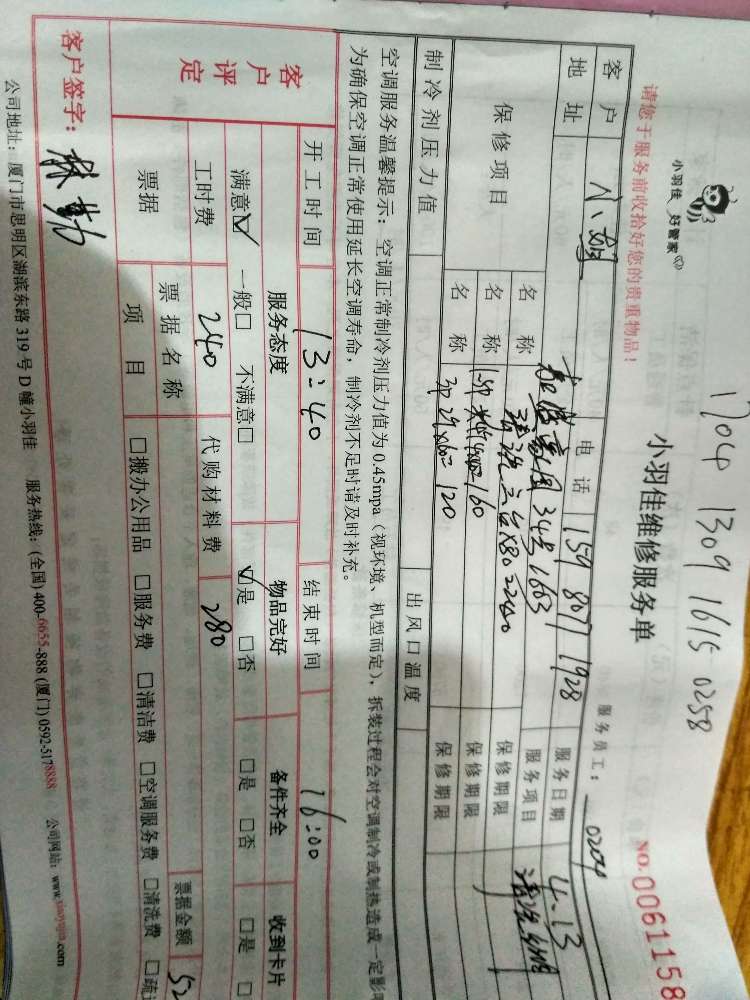 1704 1309 1615 0258
小羽佳 好管家
小羽佳维修服务单
NO.0061158
请您于服务前收拾好您的贵重物品！
服务员工： 0204
客户 小姐 电话 159 8077 1928 服务日期 4.13
地址 34号1603 服务项目 清洗
保修项目 名称 清洗三台×80=240 保修期限
名称 1.5P 160 保修期限
名称 3P 2个×60=120 保修期限
制冷剂压力值 出风口温度
空调服务温馨提示：空调正常制冷剂压力值为0.45mpa（视环境、机型而定），拆装过程会对空调制冷或制热造成一定影
为确保空调正常使用延长空调寿命，制冷剂不足时请及时补充。
客户评定 开工时间 13:40 结束时间 16:00
服务态度 物品完好 备件齐全 收到卡片
满意☑ 一般□ 不满意□ ☑是 □否 □是 □否 □是 □
工时费 240 代购材料费 280
票据 票据名称 票据金额 52
项目 □搬办公用品 □服务费 □清洁费 □空调服务费 □清洗费 □疏
客户签字： 林
公司地址：厦门市思明区湖滨东路319号D幢小羽佳 服务热线：(全国) 400-6655-888 (厦门) 0592-5178888 公司网站：www.xiaoyujia.com